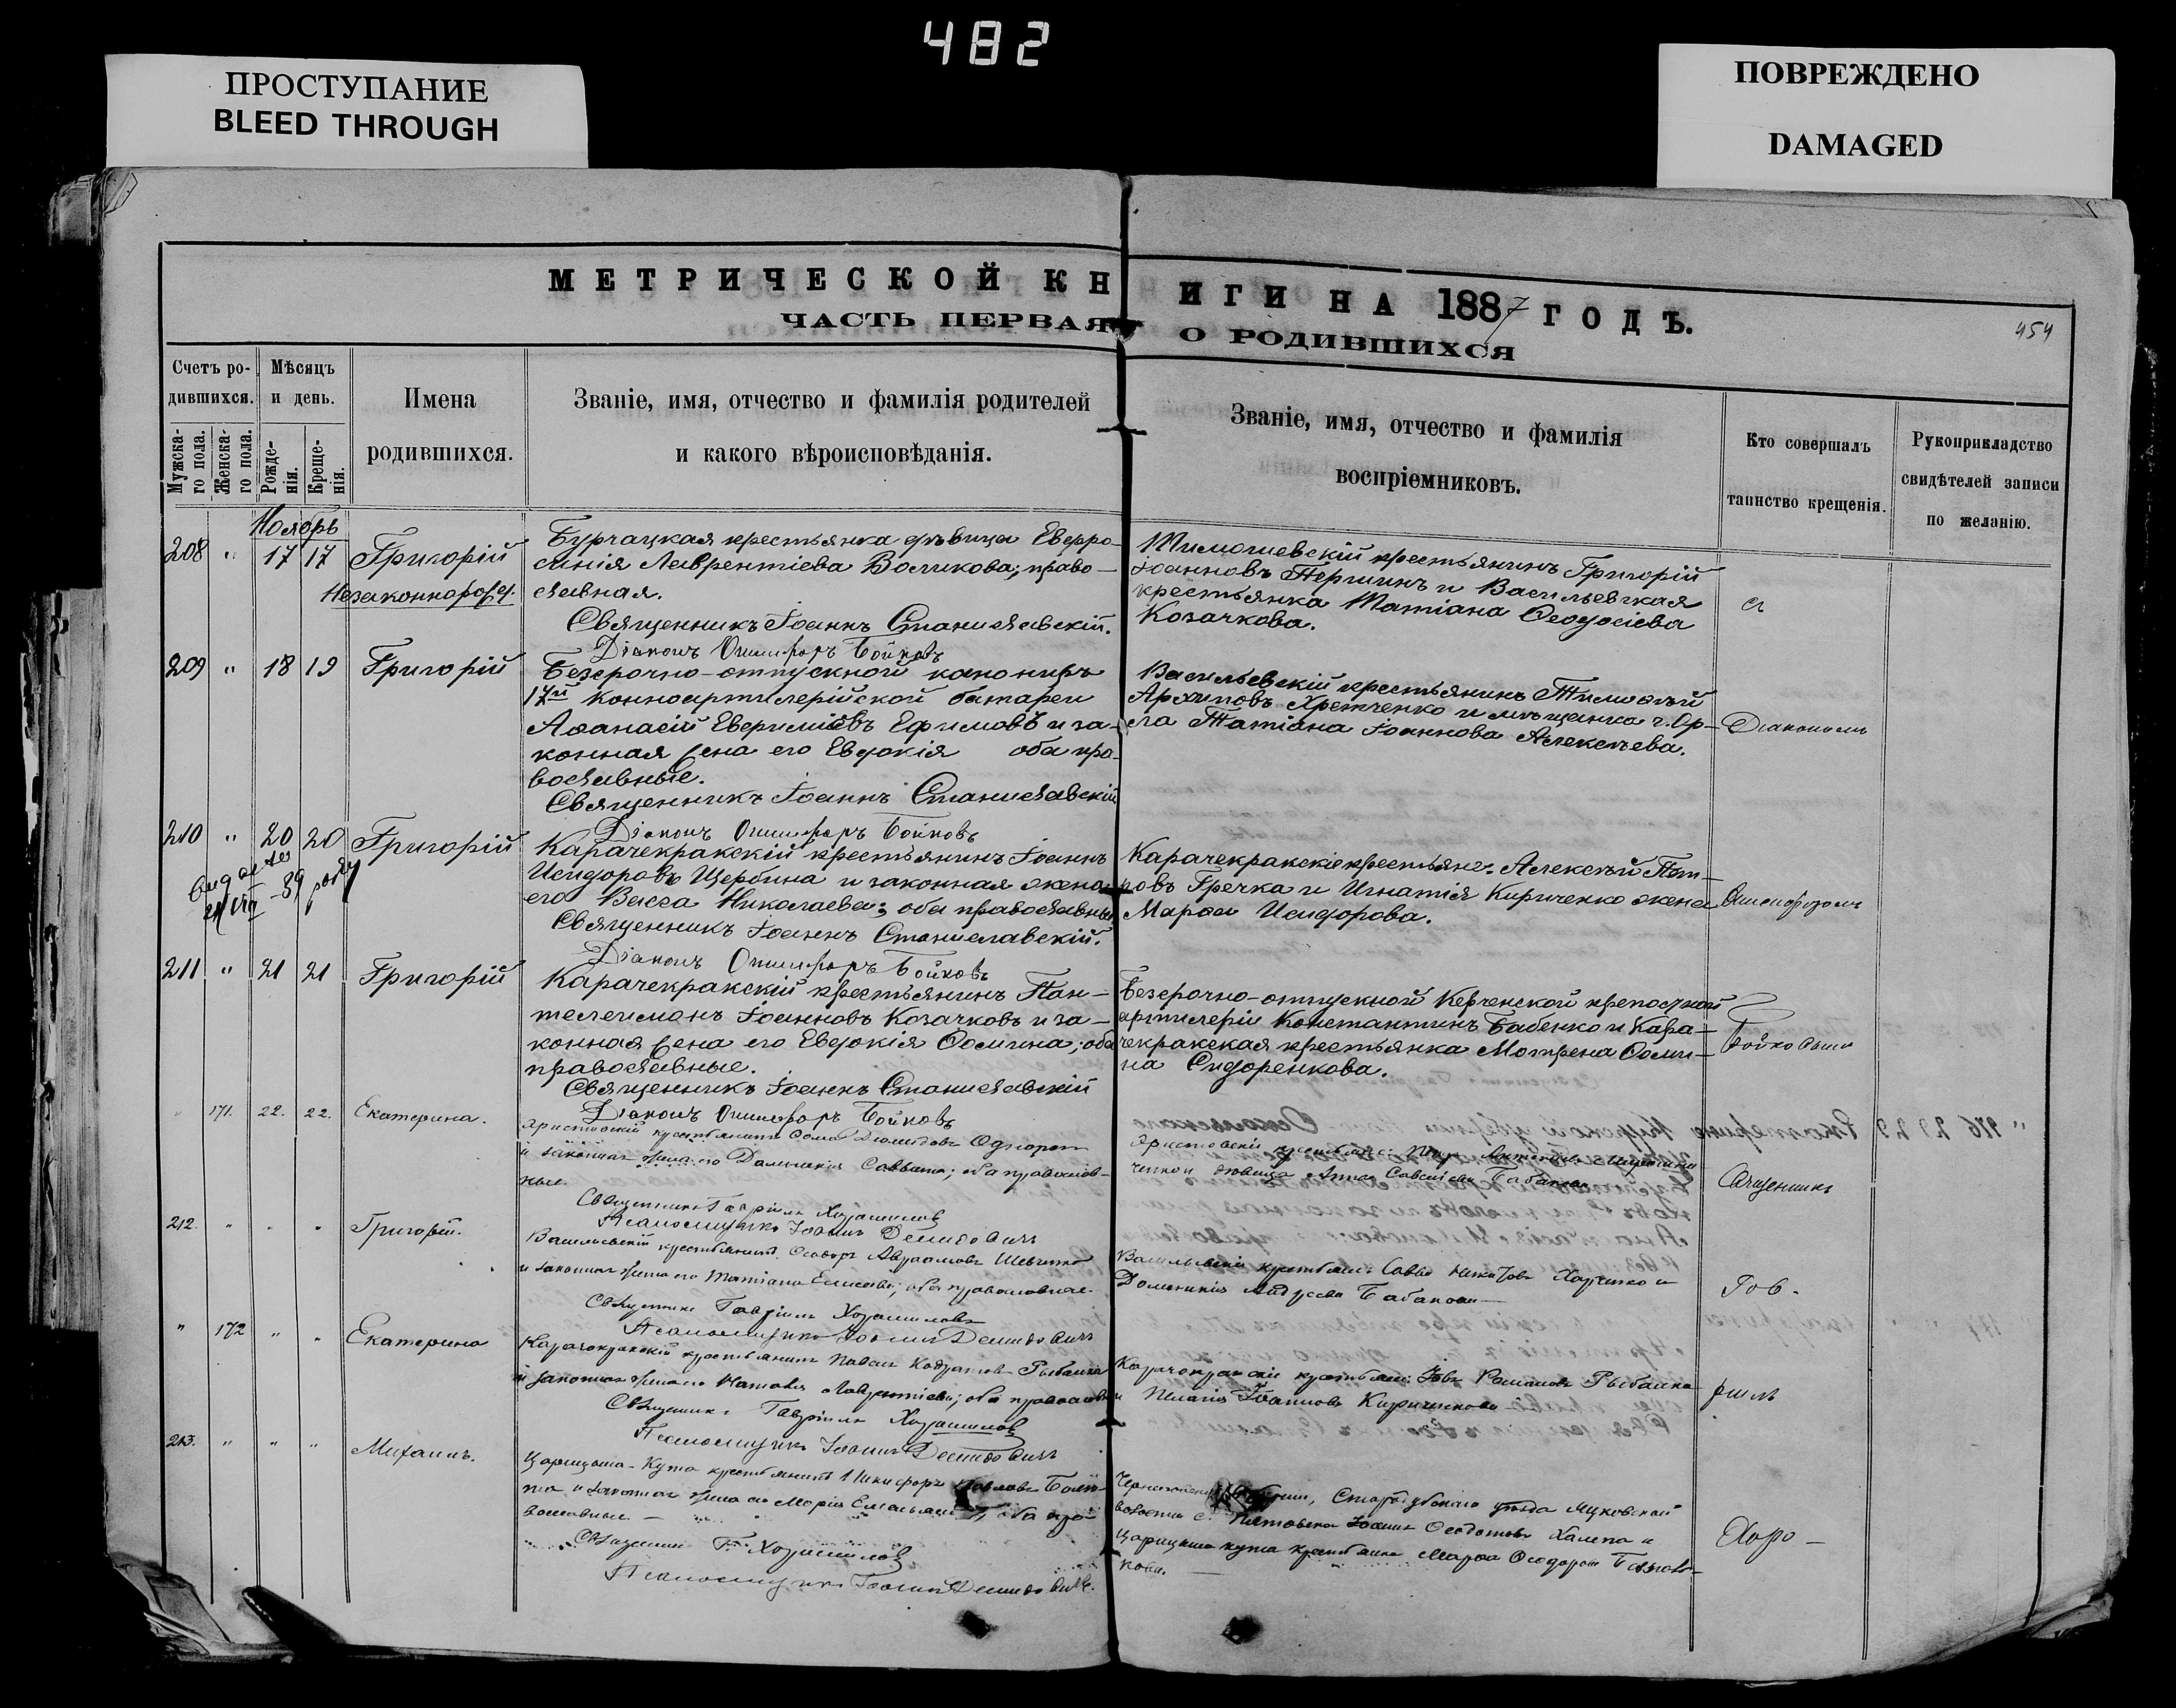 482
ПРОСТУПАНИЕ
BLEED THROUGH
ПОВРЕЖДЕНО
DAMAGED
МЕТРИЧЕСКОЙ КНИГИ НА 1887 ГОДЪ.
ЧАСТЬ ПЕРВАЯ О РОДИВШИХСЯ
454
Счетъ ро-
дившихся.
Мужска-
го пола.
Женска-
го пола.
Мѣсяцъ
и день.
Рожде-
нія.
Креще-
нія.
Имена
родившихся.
Званіе, имя, отчество и фамилія родителей
и какого вѣроисповѣданія.
Званіе, имя, отчество и фамилія
воспріемниковъ.
Кто совершалъ
таинство крещенія.
Рукоприкладство
свидѣтелей записи
по желанію.
Ноябрь
208 " 17 17 Григорій
Незаконнорожд.
Бурчацкая крестьянка дѣвица Евфро-
синія Лаврентіева Воликова; право-
славная.
Священникъ Іоаннъ Станиславскій.
Діаконъ Онисифоръ Бойковъ
Тимошевскій крестьянинъ Григорій
Іоанновъ Першинъ и Васильевская
крестьянка Татіана Ѳеодосіева
Козачкова.
209 " 18 19 Григорій
Безсрочно-отпускной канониръ
17й конноартилерійской батареи
Аѳанасій Евфиміевъ Ефимовъ и за-
конная жена его Евдокія оба пра-
вославные.
Священникъ Іоаннъ Станиславскій
Діаконъ Онисифоръ Бойковъ
Васильевскій крестьянинъ Тимоѳей
Архиповъ Хретченко и мѣщанка г. Ор-
ла Татіана Іоаннова Алексѣева.
Діакономъ
210 " 20 20 Григорій
Карачекракскій крестьянинъ Іоаннъ
Исидоровъ Щербина и законная жена
его Васса Николаева; оба православны
Священникъ Іоаннъ Станиславскій.
Діаконъ Онисифоръ Бойковъ
Карачекракскіе крестьяне: Алексѣй Пет-
ровъ Гречка и Игнатія Кириченко жена
Марѳа Исидорова.
Онисифоромъ
211 " 21 21 Григорій
Карачекракскій крестьянинъ Пан-
телеимонъ Іоанновъ Козачковъ и за-
конная жена его Евдокія Ѳомина; оба
православные.
Священникъ Іоаннъ Станиславскій
Діаконъ Онисифоръ Бойковъ
Безсрочно-отпускной Керченской крепостной
артилеріи Константинъ Бабенко и Кара-
чекракская крестьянка Мотрена Ѳоми-
на Сидоренкова.
Бойковымъ
" 171. 22. 22. Екатерина.
и законная жена его Домникія Саввина; оба православ-
ные.
Священникъ Гавріилъ
Псаломщикъ Іоаннъ Демидовичъ
Священникъ
212. " " " Григорій.
Васильевскій крестьянинъ Ѳеодоръ Авраамовъ Шевченко
и законная жена его Татіана Елисеева; оба православные.
Священникъ Гавріилъ
Псаломщикъ Іоаннъ Демидовичъ
Васильевскіе крестьяне: Савва Никитовъ Харченко и
Домникія Андреева Бабакова
Гав-
" 172 " " Екатерина
Карачокракскій крестьянинъ Павелъ Кодратовъ Рыбалка
и законная жена его Наталія Лаврентіева; оба православны
Священникъ Гавріилъ
Псаломщикъ Іоаннъ Демидовичъ
Карачокракскіе крестьяне: Іовъ Романовъ Рыбалка
и Пелагія Іоаннова Кириченкова
ріилъ
213. " " " Михаилъ.
Царицына-Кута крестьянинъ Никифоръ Павловъ
и законная жена его Марія оба пра-
вославные
Священникъ Г.
Псаломщикъ Іоаннъ Демидовичъ.
губерніи, Стародубскаго уѣзда
волости с. Іоаннъ Ѳеодотовъ Халепа и
Царицына кута крестьянка Марѳа
кова.
Хара-